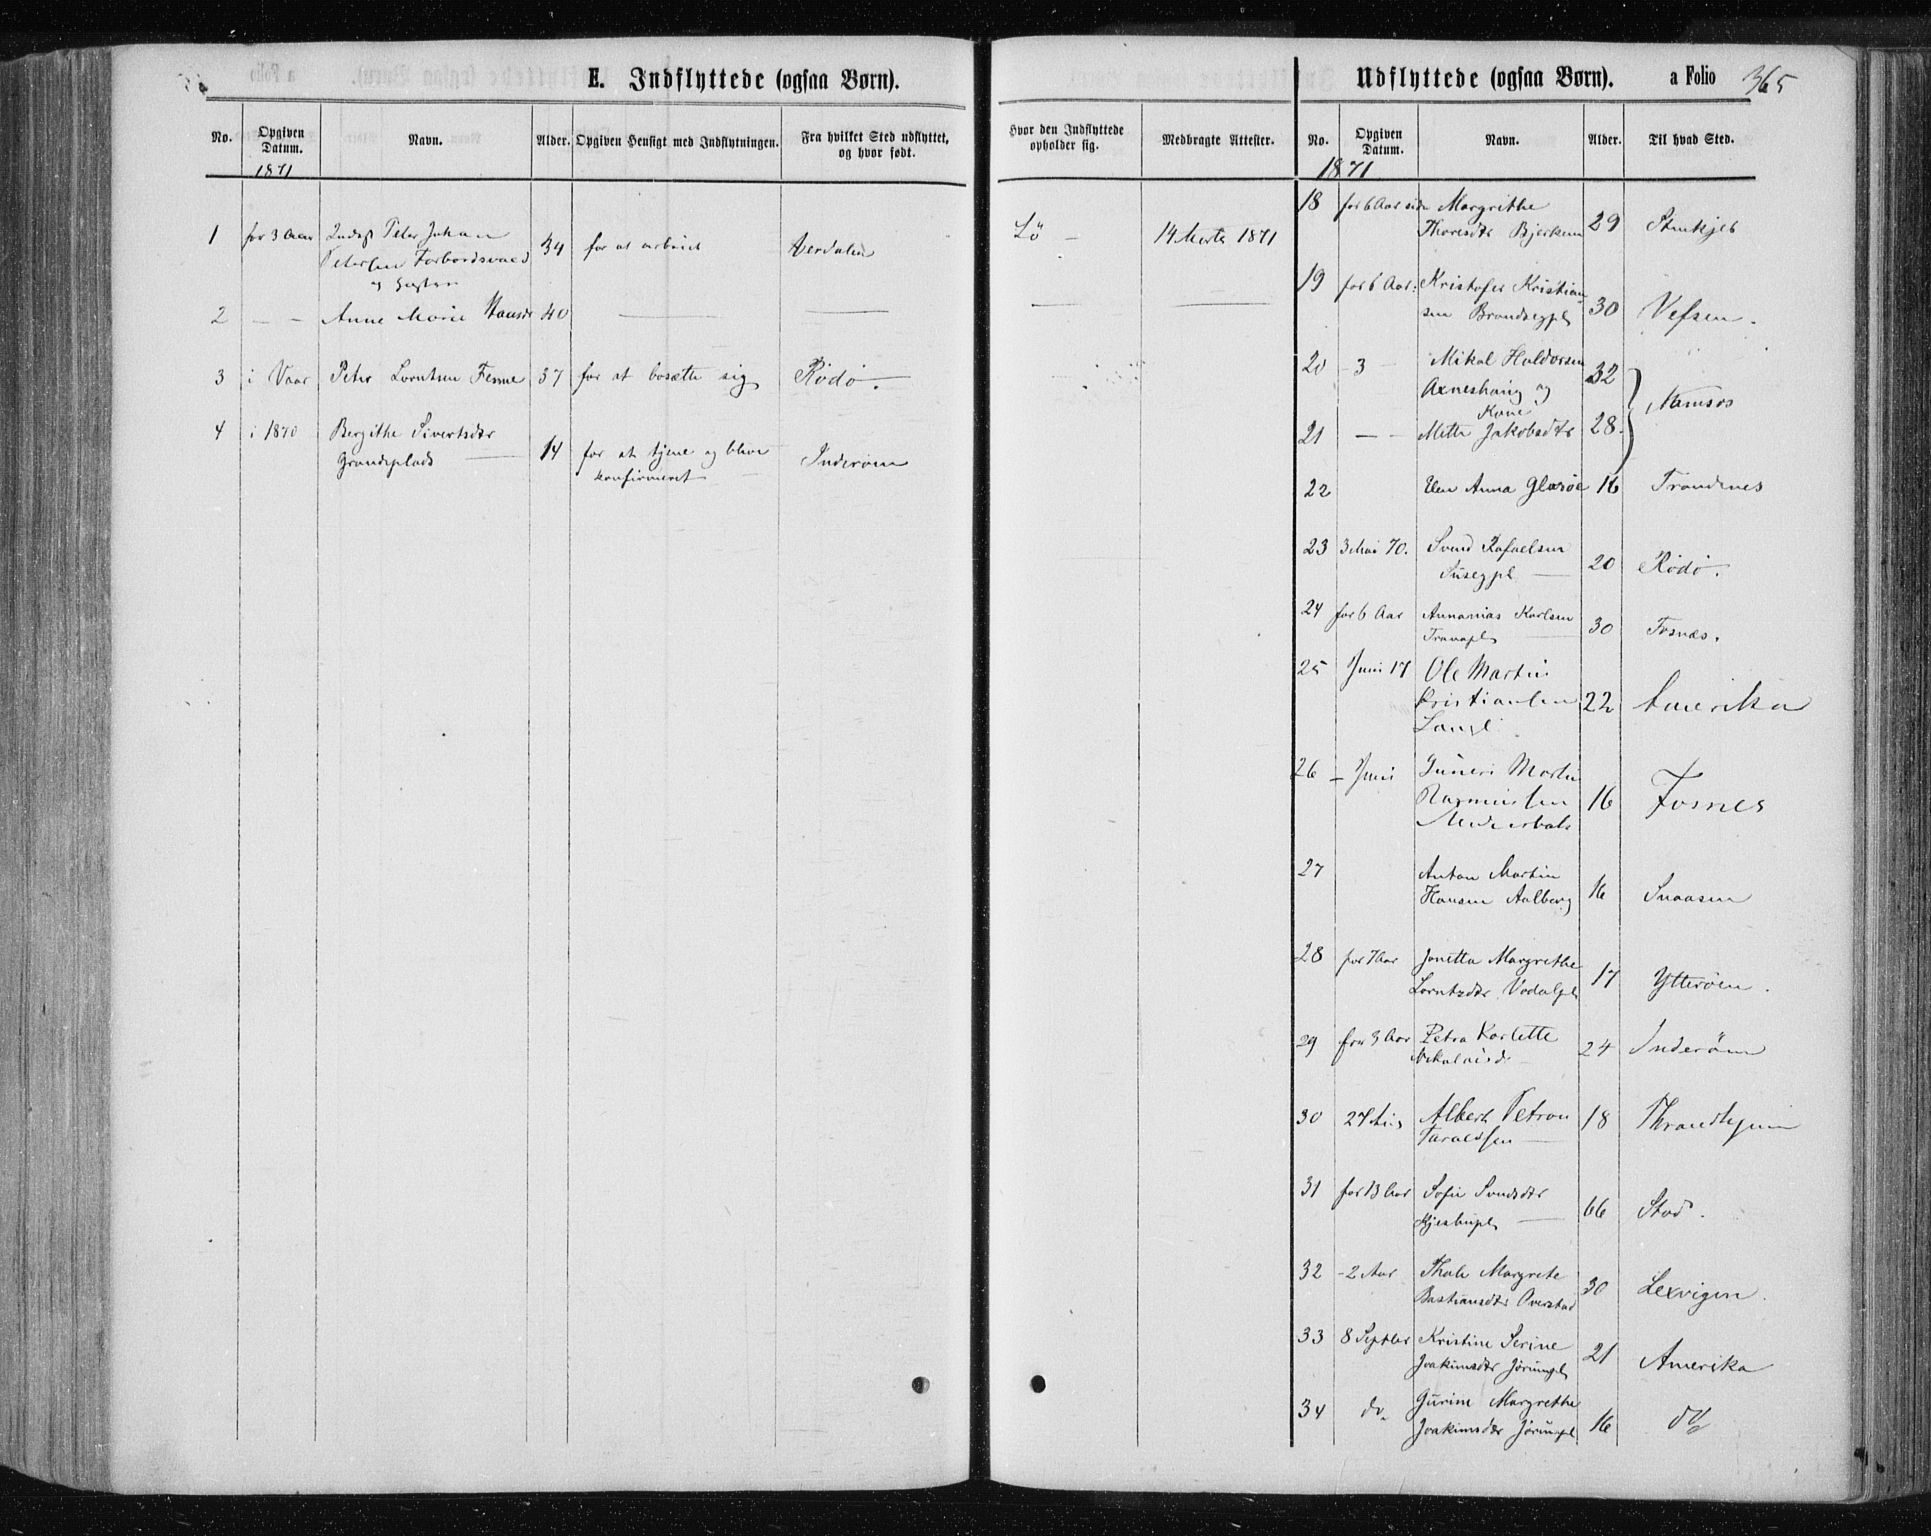 E. Indflyttede (ogsaa Børn).
No.
Opgiven Datum.
Navn.
Alder.
Opgiven Hensigt med Indflytningen.
Fra hvilket Sted udflyttet, og hvor født.
Hvor den Indflyttede opholder sig.
Medbragte Attester.
1871
1 for 3 Aar Peter Johan 34 for at arbeid Verdalen Lö - 14 Marts 1871
Petersen
2 - - Anne Marie Hansdr 40
3 i Vaar Peter Lorntsen Fenne 37 for at bosætte sig Rödö.
4 i 1870 Bergithe Sivertsdtr 14 for at tjene og blive Inderöen
Grandeplads konfirmeret
Udflyttede (ogsaa Børn).
a Folio 365
No.
Opgiven Datum.
Navn.
Alder.
Til hvad Sted.
1871
18 for 6 Aar siden Margrithe 29 Stenkjer
Thoresdtr Bjerkem
19 for 6 Aar: Kristofer Kristian 30 Vefsen.
sen Brandsegpl
20 - 3 - Mikal Haldorsen 32 Namsos
Axneshaug og
Kone
21 - - Mette Jakobsdtr 28
22 Elen Anna Glasöe 16 Trondenes
23 3 Mai 70. Svend Rafaelsen 20 Rödö.
Susegpl
24 for 6 Aar Annanias Karlsen 30 Fosnæs.
Tranapl
25 Juni 17 Ole Martin 22 Amerika
Cristiansen
Langl
26 - Juni Martin 16 Fosnes
Rasmussen
27 Anton Martin 16 Snaasen
Hansen Aalberg
28 for 7 Aar Jonetta Margrethe 17 Ytteröen.
Lorntzdtr Vodalpl
29 for 3 Aar Petra Karlette 24 Inderöen
Nikolaisdr
30 24 Aug Albert Petron 18 Thrandhjem
Taraldsen
31 for 13 Aar Sofie Svendsdtr 66 Stod.
32 - 2 Aar Thale Margrete 30 Lexvigen.
Bastiansdtr Overstad
33 8 Septbr Kristine Serine 21 Amerika
Joakimsdtr Jörumpl
34 do. Gurine Margrethe 16 do
Joakimsdtr Jörumpl